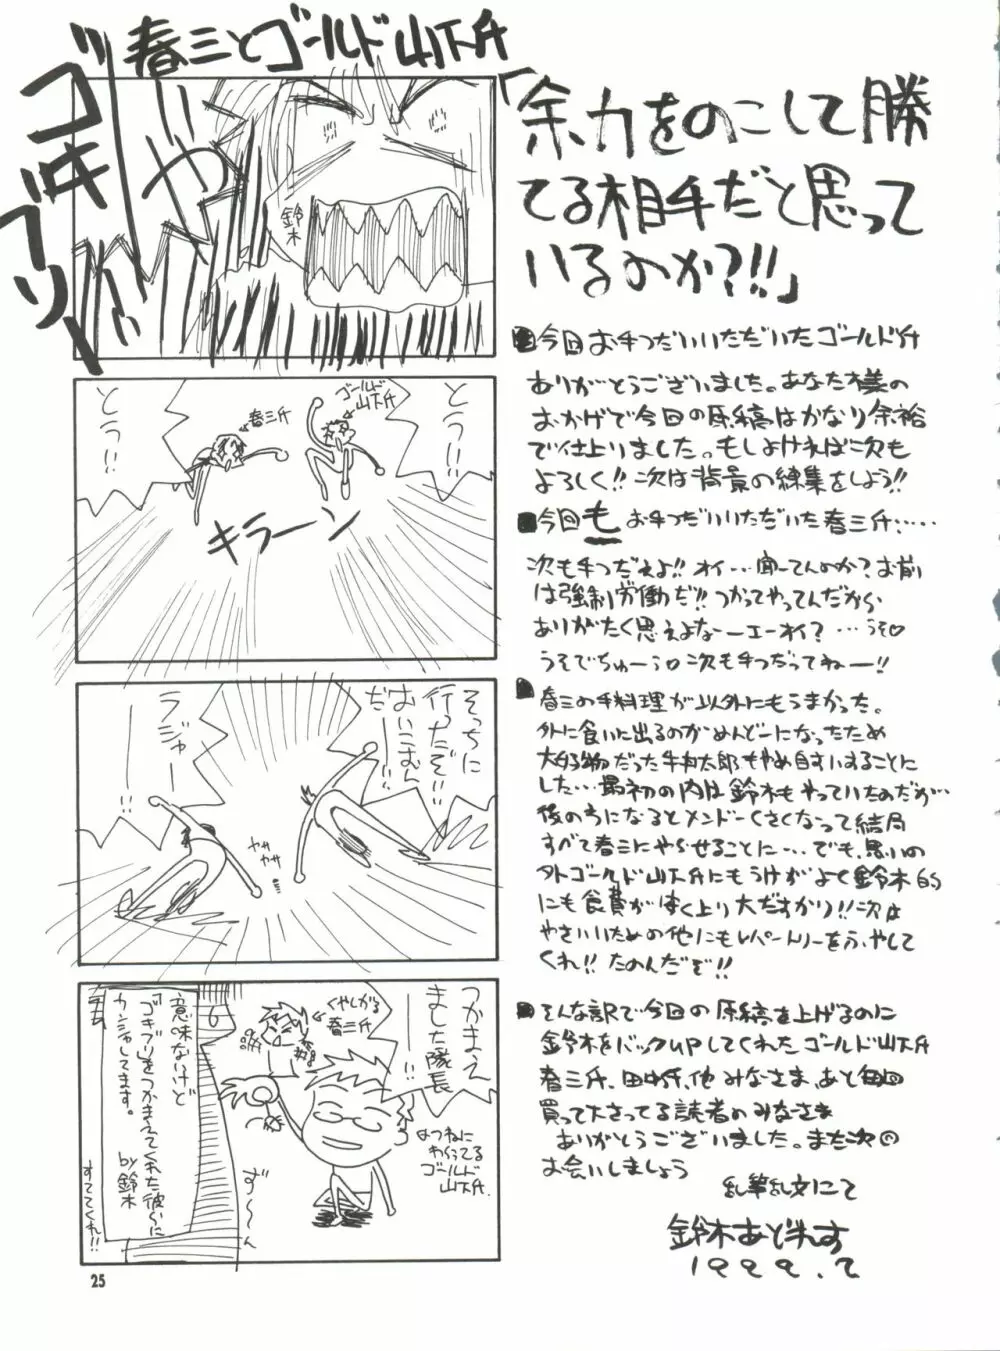 春三とゴールド山下斤
ゴキブリ
いやー
鈴木
「余力をのこして勝
てる相手だと思って
いるのか?!!」
とうっ!!
春三斤
ゴールド
山下斤
とうっ!!
キラーン
そっちに
行ったぞ!!
おいこむん
だ!!
ラジャー
カサカサ
つかまえ
ました隊長
!!
くやしがる
春三斤
はつねに
わらってる
ゴールド
山下斤.
ず〜〜ん
意味ないけど
「ゴキブリ」をつかまえてくれた彼らに
カンシャしてます。
by鈴木
すててくれ!!
今回お手つだいいただいたゴールド斤
ありがとうございました。あなた様の
おかげで今回の原稿はかなり余裕
で仕上りました。もしよければ次も
よろしく!!次は背景の練集をしよう!!
今回もお手つだいいただいた春三斤……
次も手つだえよ!!オイ…聞ーてんのか?お前
は強制労働だ!!つかってやってんだから
ありがたく思えよなーエーオイ?…うそ♡
うそでちゅーう♡次も手つだってねー!!
春三の手料理が以外にもうまかった。
外に食いに出るのがめんどーになったため
大好物だった牛丼太郎もやめ自すいすることに
した…最初の内は鈴木もやっていたのだが…
後の方になるとメンドーくさくなって結局
すべて春三にやらせることに…でも、思いの
外ゴールド山下斤にもうけがよく鈴木的
にも食費がすく上り大だすかり!!次は
やさいいための他にもレパートリーをふやして
くれ!!たのんだぞ!!
そんな訳で今回の原稿を上げるのに
鈴木をバックupしてくれたゴールド山下斤
春三斤、田中斤、他みなさま、あと毎回
買って下さってる読者のみなさま
ありがとうございました。また次の
お会いしましょう
乱筆乱文にて
鈴木あどれす
1999.2
25